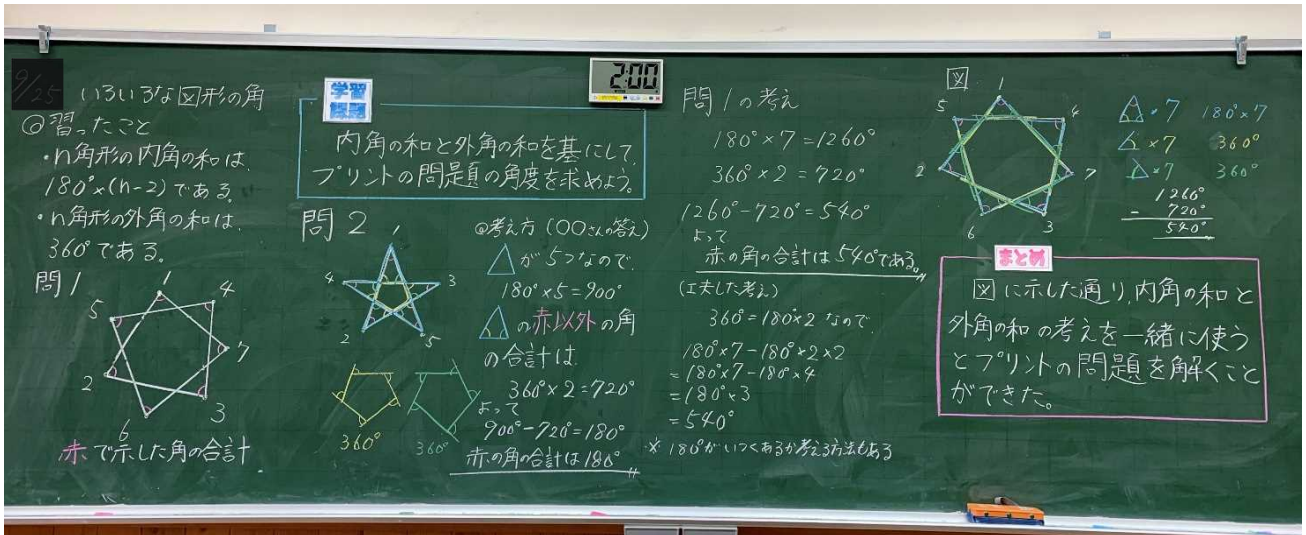 9/25
いろいろな図形の角
◎習ったこと
・n角形の内角の和は、
180°×(n-2)である。
・n角形の外角の和は、
360°である。
問1
1
5
4
2
7
6
3
赤で示した角の合計
学習
課題
内角の和と外角の和を基にして、
プリントの問題の角度を求めよう。
2:00
問2
1
4
3
2
5
360°
360°
◎考え方(〇〇さんの答え)
△が5つなので、
180°×5=900°
△の赤以外の角
の合計は、
360°×2=720°
よって
900°-720°=180°
赤の角の合計は180°
問1の考え
180°×7=1260°
360°×2=720°
1260°-720°=540°
よって
赤の角の合計は540°である。
(工夫した考え)
360°=180°×2なので、
180°×7-180°×2×2
=180°×7-180°×4
=180°×3
=540°
※180°がいくつあるか考える方法もある
図
1
5
4
2
7
6
3
△×7 180°×7
∠×7 360°
△×7 360°
1260°
- 720°
540°
まとめ
図に示した通り、内角の和と
外角の和の考えを一緒に使う
とプリントの問題を解くこと
ができた。